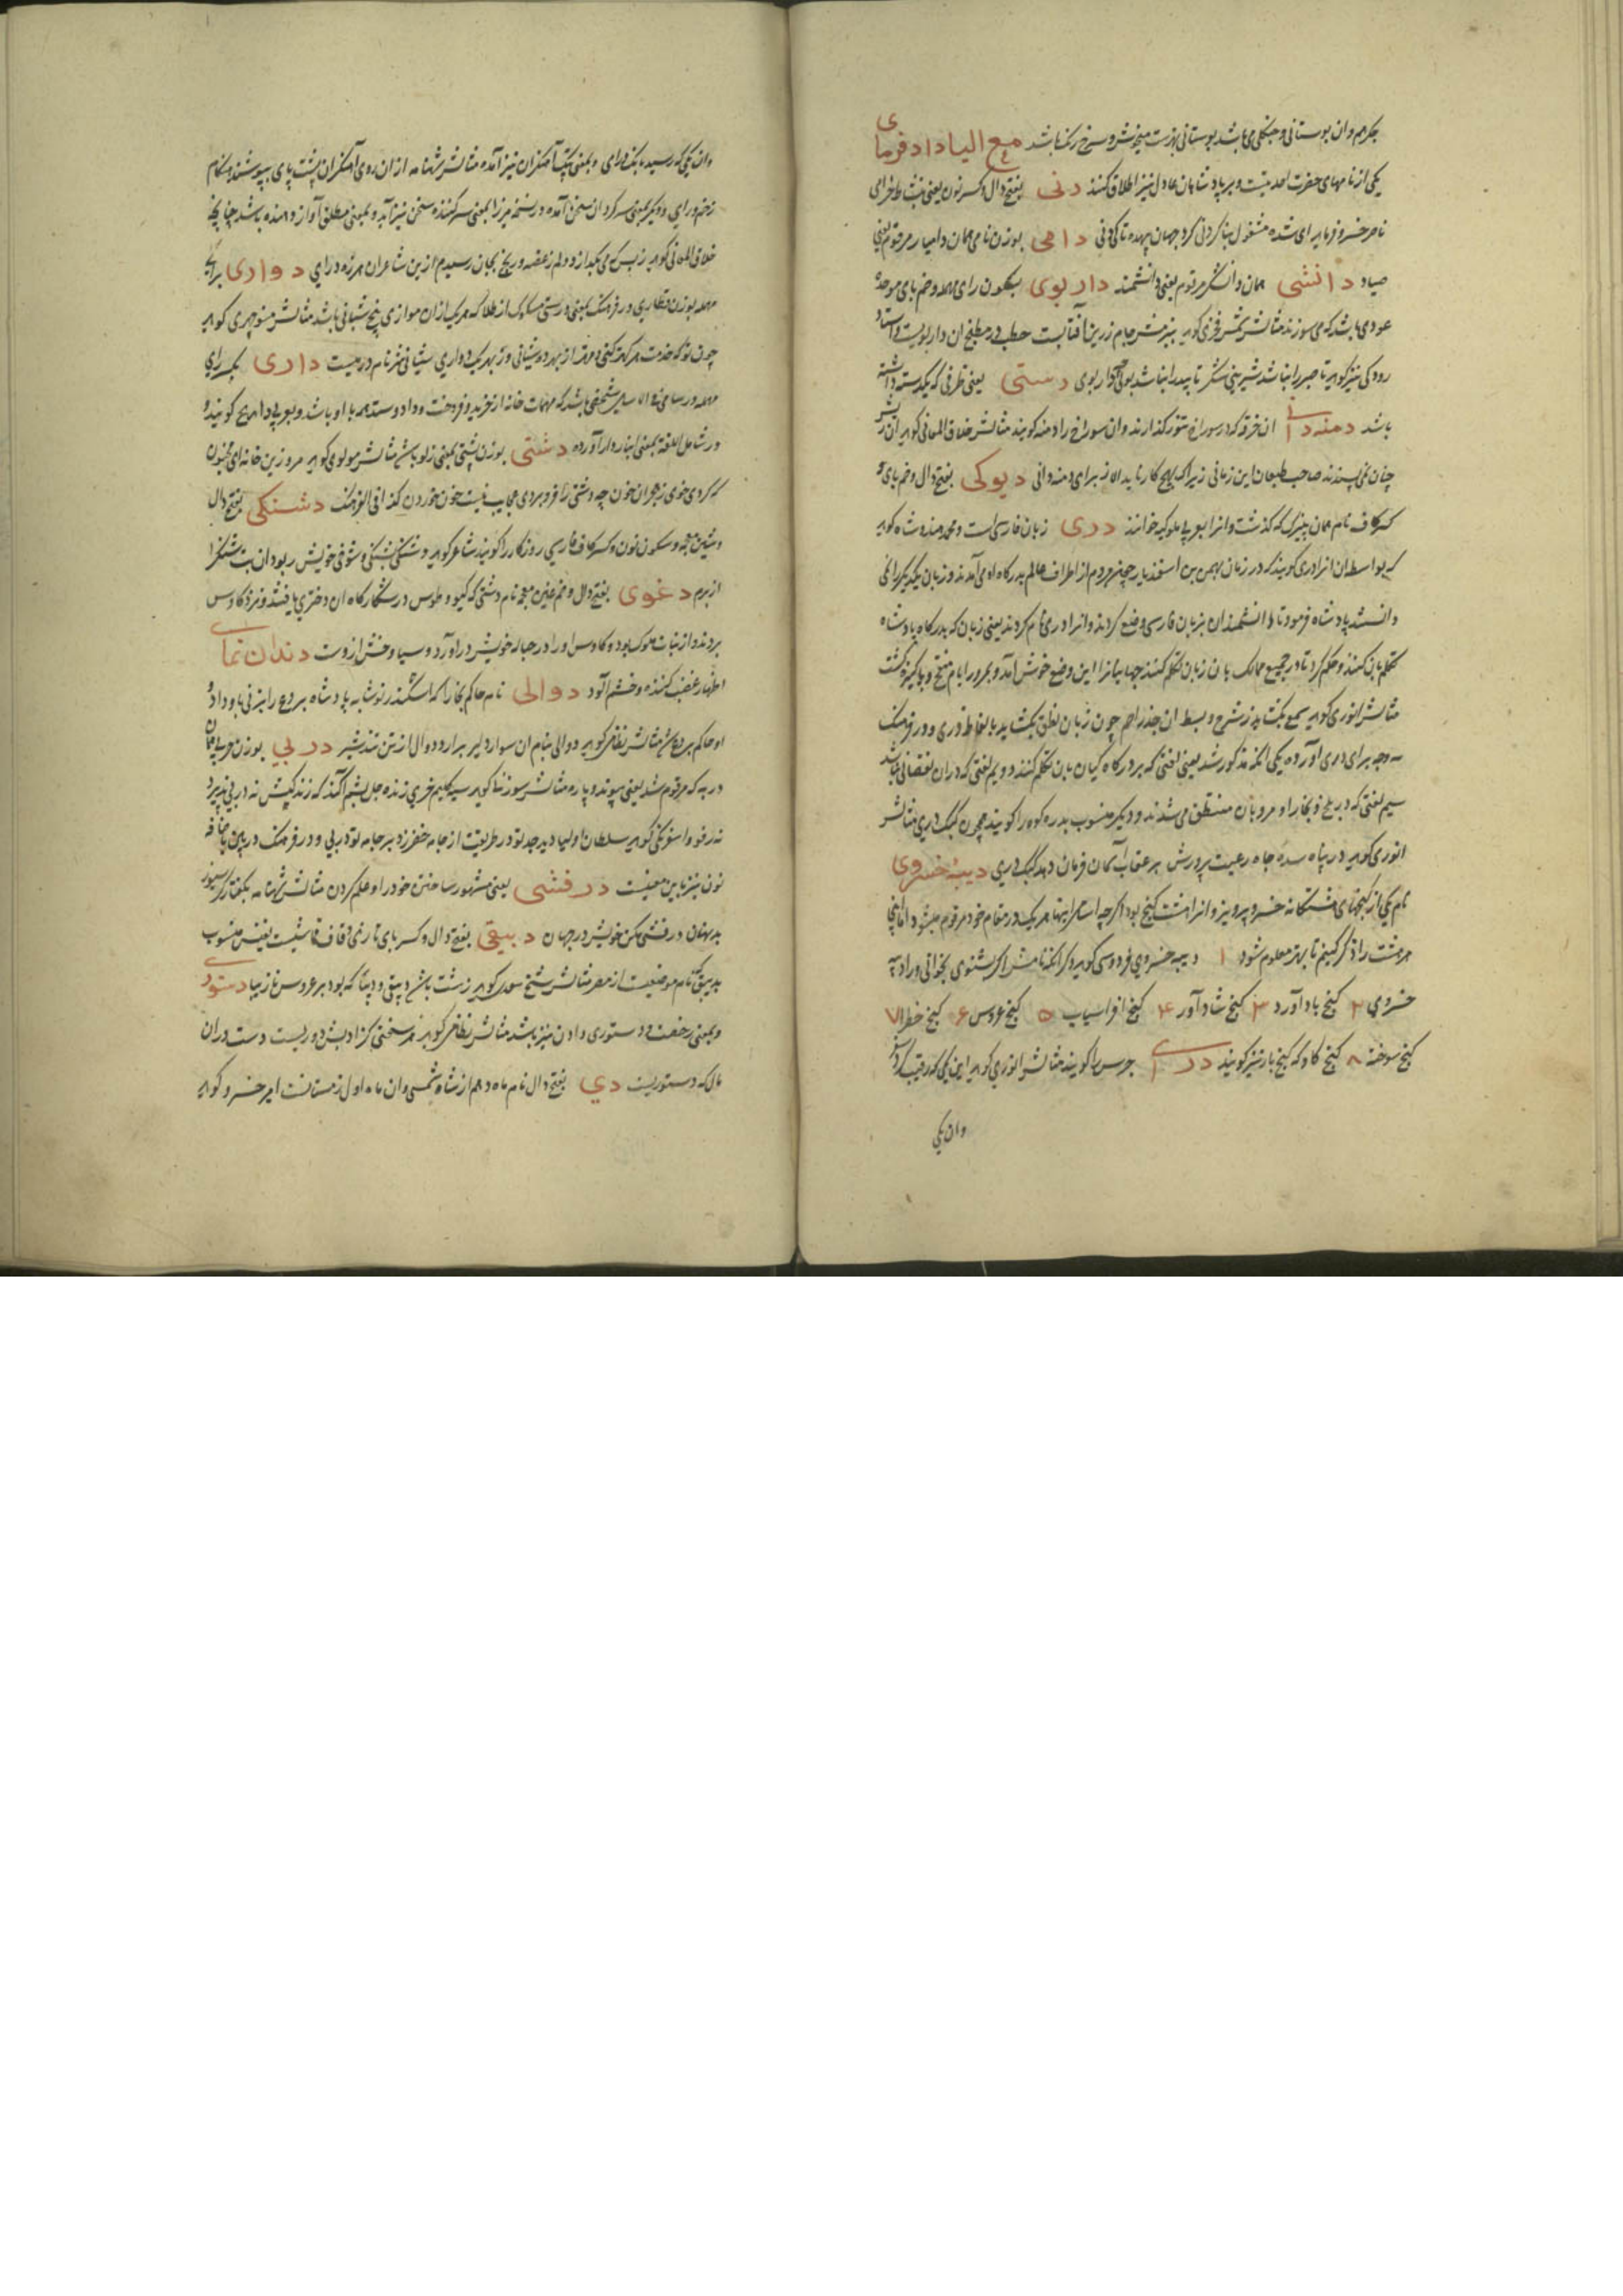 جکرم وان بوستانی و جنکلی می باشد بوستانی بدرست میخوش و سرخ رنک باشد مع الیا دادفرمای
یکی از نامهای حضرت احدیتست و بر پادشاهان عادل نیز اطلاق کنند دنی بفتح دال و کسر نون یعنی بنشاط خرامی
ناصر خسرو فرماید ای شده مشغول بنا کردنی کرد جهان بیهده تا کی دنی دامی بوزن نامی همان دامیار مرقوم یعنی
صیاد دانشی همان دانشکر مرقوم یعنی دانشمند داربوی بسکون رای مهمله و ضم بای موحده
عودی باشد که می سوزند مثالش شمس فخری کوید جام زرین آفتابست حطب در مطبخ ان داربویست و استاد
رودکی نیز کوید تا صبر را نباشد شیرینی شکر تا بید را نباشد بوی چو داربوی دستی یعنی ظرفی که یکدسته داشته
باشد دمنه دانی ان خرقه که در سوراخ تنور کذارند وان سوراخ را دمنه کویند مثالش خلاق المعانی کوید ان ریش
چنان نمی پسندند صاحب طبعان این زمانی زیرا که بهیچ کار ناید الا ز برای دمنه دانی دیوکی بفتح دال و ضم بای و
کسر کاف نام همان چیزک که کذشت وانرا بعربی ملوکیه خوانند دری زبان فارسی است و محمد هندوشاه کوید
که بواسطه ان انرا دری کویند که در زمان بهمن بن اسفندیار چون مردم از اطراف عالم بدرکاه او می آمدند و زبان یکدیکر را نمی
دانستند پادشاه فرمود تا دانشمندان زبان فارسی وضع کردند وانرا دری نام کردند یعنی زبان که بدرکاه پادشاه
تکلم بان کنند و حکم کرد تا در جمیع ممالک بان زبان تکلم کنند جهانیانرا این وضع خوش آمد و بمرور ایام منقح و پاکیزه کشت
مثالش انوری کوید سمع بکشاید ز شرح و بسط ان جذر اصم چون زبان نطق بکشاید بالفاظ دری و در فرهنک
سه وجه برای دری آورده یکی انکه مذکور شد یعنی لغتی که بر درکاه کیان بان تکلم کنند دویم لغتی که دران نقصانی نباشد
سیم لغتی که در بلخ و بخارا و مرو بان متنطق می شدند و دیکر منسوب بدره کوه را کویند همچون کبک دری مثالش
انوری کوید در پناه سده جاه رعیت پرورش بر عقاب آسمان فرمان دهد کبک دری دیبه خسروی
نام یکی از کنجهای هشتکانه خسرو پرویز وانرا هشت کنج بود اکرچه اسامی اینها هر یک در مقام خود مرقوم میشود اما اینجا
هر هشت را ذکر کنیم تا بهتر معلوم شود ۱ دیبه خسروی فردوسی کوید دکر انکه نامش اکر بشنوی بخوانی ورا دیبه
خسروی ۲ کنج بادآورد ۳ کنج شادآور ۴ کنج افراسیاب ۵ کنج عروس ۶ کنج خضرا ۷
کنج سوخته ۸ کنج کاو که کنج بار نیز کویند درای جرس را کویند مثالش انوری کوید این یکی که رقیب کردش
وان یکی
وان یکی که رسیده بانک درای و بمعنی پتک آهنکران نیز آمده مثالش شهنامه ازان روی آهنکران پشت پای بپوشند هنکام
زخم درای و دیکر بمعنی سرکردان سخن آمده و در نسخه میرزا بمعنی سرکننده سخن نیز آید و بمعنی مطلق آواز دهنده باشد چنانچه
خلاق المعانی کوید زبس که می بکدازد دلم ز غصه و رنج بجان رسیدم ازین شاعران هرزه درای دواری برای
مهمله بوزن قطاری در فرهنک بمعنی درستی مسکوک از طلا که هر یک ازان موازی پنج شیانی باشد مثالش منوچهری کوید
چون تو که خدمت هر کهتر کنی و مهتر از بهر دو شیانی وز بهر یک دواری شیانی نیز نام درمیست داری بکسر رای
مهمله در سامی فی الاسامی شخصی باشد که مهمات خانه از خرید و فروخت و داد و ستد همه با او باشد و بعربی داهیج کویند و
در شامل اللغة بمعنی انباردار آورده دشتی بوزن پشتی بمعنی زلو باشد مثالش مولوی کوید مرو زین خانه ای مجنون
که کردی خوی ز هجران خون چو دشتی را فرو بردی عجایب نیست خون خوردن کذا فی الفرهنک دشنکی بفتح دال
و شین معجمه و سکون نون و کسر کاف فارسی روزکار را کویند شاعر کوید دشنکی بشنکی و شوخی خویش ربود ان بت شنکرا
از برم دغوی بفتح دال و ضم غین معجمه نام دشتی که کیو و طوس در شکارکاه ان دختری یافتند و نزد کاوس
بردند و از بنات ملوک بود و کاوس او را در حباله خویش درآورد و سیاوخش ازوست دندان نمای
اظهار غضب کننده و خشم آلود دوالی نام حاکم بخارا که اسکندر نوشابه پادشاه بردع را بزنی باو داد و
او حاکم بردع شد مثالش نظامی کوید دوالی بنام ان سوار دلیر برارد دوال از تن تند شیر دربی بوزن عربی همان
درپه که مرقوم شد یعنی پیوند و پاره مثالش سوزنی کوید سیه کلیم خری ژنده جل پشم آکند که ژندکیش نه دربی پذیرد
نه رفو و اسفرنکی کوید سلطان اولیا دید جد تو در طریقت از جامه خضر زد بر جامه تو دربی و در فرهنک درپی باضافه
نون نیز باین معنیست درفشی یعنی مشهور ساختن خود را و علم کردن مثالش شهنامه بکفتار کرسیوز
بدنهان درفشی مکن خویش در جهان دبیقی بفتح دال و کسر بای تازی و قاف قماشیست نفیس منسوب
بدبیق که نام موضعیست از مصر مثالش شیخ سعدی کوید زشت باشد دبیقی و دیبا که بود بر عروس نازیبا دستوری
و بمعنی رخصت و دستوری دادن نیز باشد مثالش نظامی کوید هر سخنی کز ادبش دوریست دست دران
مال که دستوریست دی بفتح دال نام ماه دهم از شاه شمسی وان ماه اول زمستانست امیر خسرو کوید